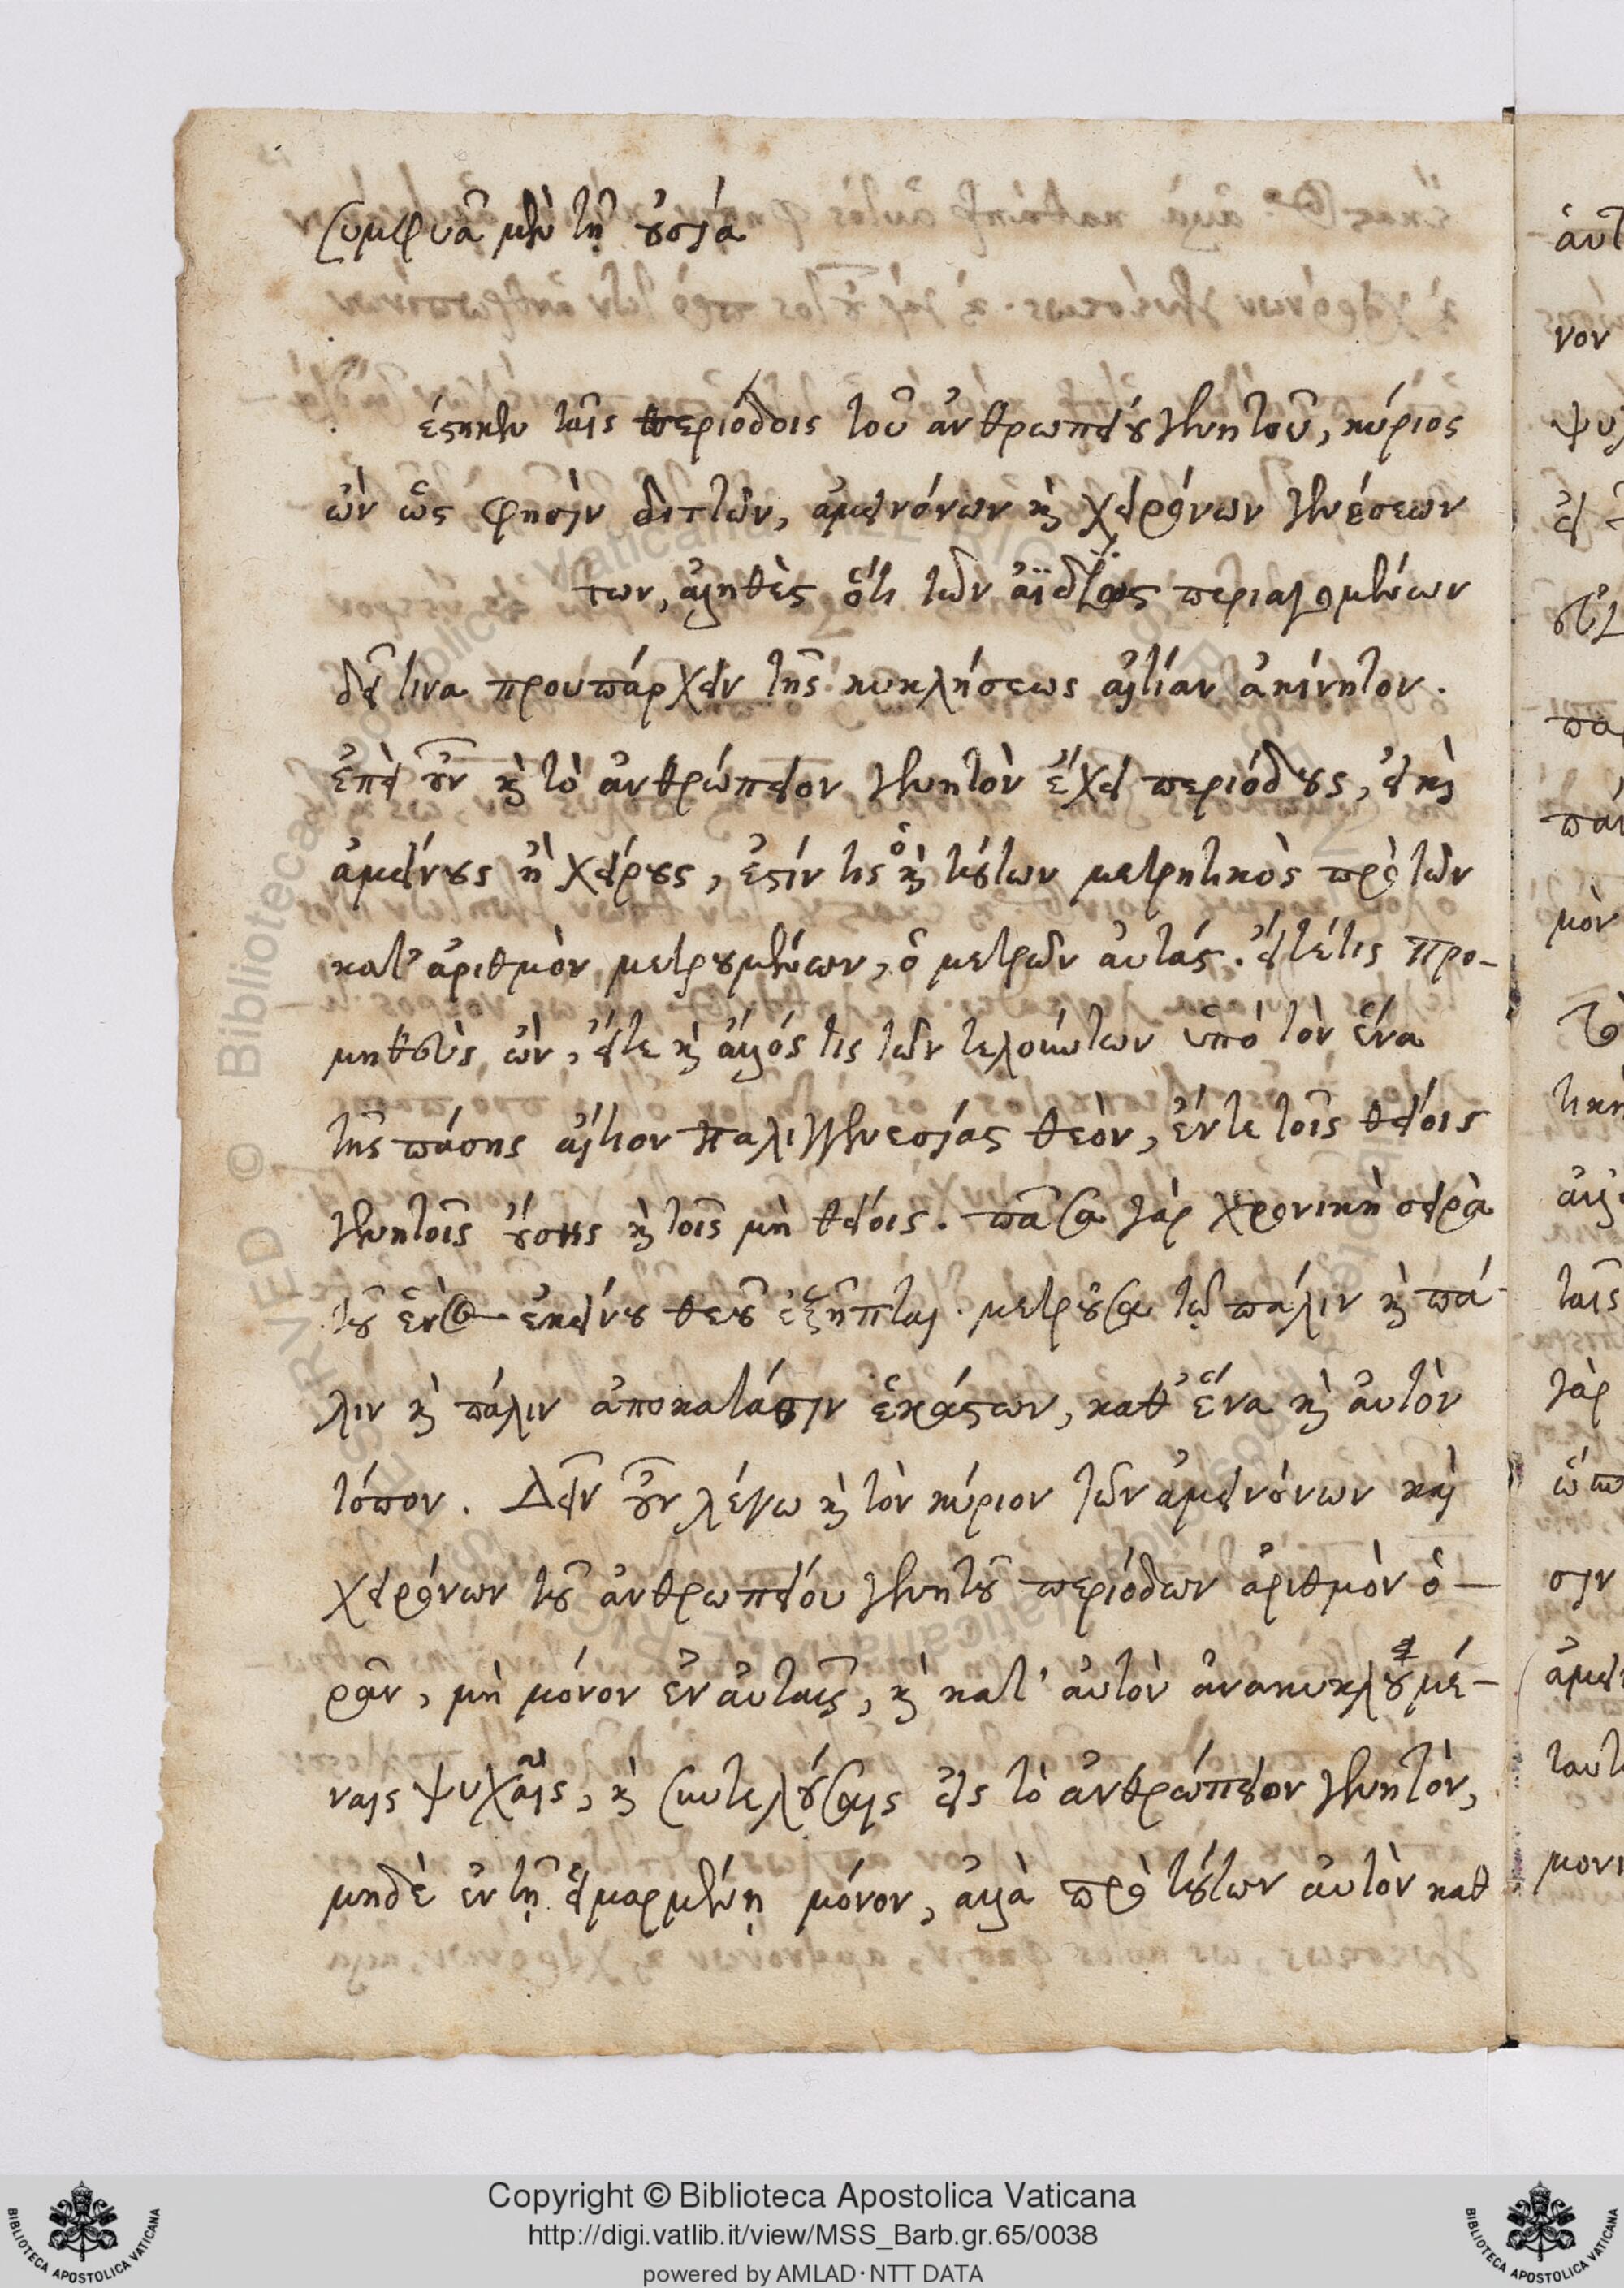 συμφυᾶ μὲν τῇ οὐσίᾳ
ἕστηκεν ταῖς περιόδοις τοῦ ἀνθρωπείου γεννητοῦ, κύριος
ὢν ὥς φησὶν διττῶν, ἀμεινόνων καὶ χειρόνων γενέσεων
των, ἀληθὲς ὅτι τῶν ἀϊδίως περιαγομένων
δεῖ τινα προυπάρχειν τῆς κυκλήσεως αἰτίαν ἀκίνητον.
ἐπεὶ οὖν καὶ τὸ ἀνθρώπειον γεννητὸν ἔχει περιόδους, εἰ καὶ
ἀμείνους ἢ χείρους, ἐστίν τις ὁ καὶ τούτων μετρητικὸς πρὸ τῶν
κατ' ἀριθμὸν μετρουμένων, ὁ μετρῶν αὐτάς. εἴτέ τις προ-
μηθεὺς ὢν, εἴτε καὶ ἄλλός τις τῶν τελούντων ὑπὸ τὸν ἕνα
τῆς πάσης αἴτιον παλιγγενεσίας θεὸν, ἔν τε τοῖς θείοις
γεννητοῖς οὔσης καὶ τοῖς μὴ θείοις. πᾶσα γὰρ χρονικὴ σειρὰ
τοῦ ἑνὸς ἐκείνου θεοῦ ἐξῆπται. μετροῦσα τῷ πάλιν καὶ πά-
λιν καὶ πάλιν ἀποκατάστασιν ἑκάστων, καθ' ἕνα καὶ αὐτὸν
τόπον. Δεῖν οὖν λέγω καὶ τὸν κύριον τῶν ἀμεινόνων καὶ
χειρόνων τοῦ ἀνθρωπείου γεννητοῦ περιόδων ἀριθμὸν ὁ-
ρᾶν, μὴ μόνον ἐν αὐταῖς, καὶ κατ' αὐτὸν ἀνακυκλουμέ-
ναις ψυχαῖς, καὶ συντελούσαις εἰς τὸ ἀνθρώπειον γεννητὸν,
μηδὲ ἐν τῇ εἱμαρμένῃ μόνον, ἀλλὰ πρὸ τούτων αὐτὸν καθ
Copyright © Biblioteca Apostolica Vaticana
http://digi.vatlib.it/view/MSS_Barb.gr.65/0038
powered by AMLAD·NTT DATA